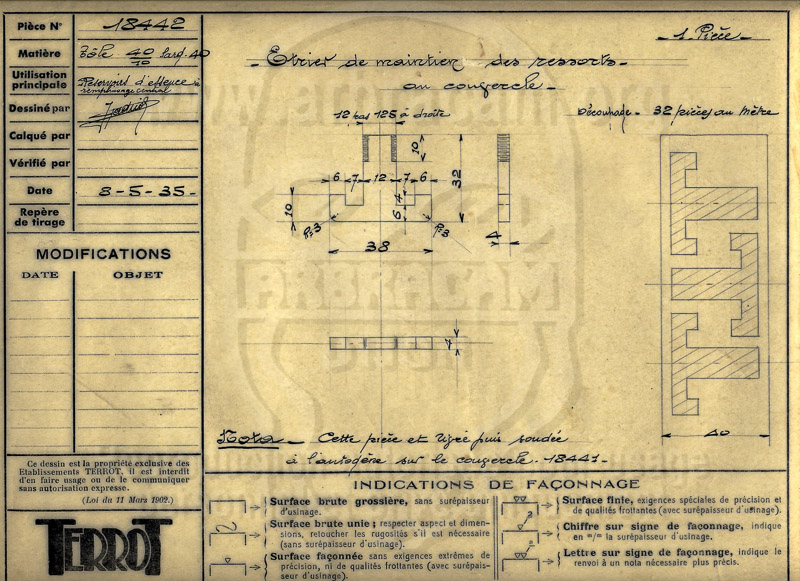 Pièce N° 18442
Matière Tôle 40/10 larg. 40
Utilisation principale Réservoirs d'essence à remplissage central
Dessiné par
Calqué par
Vérifié par
Date 8-5-35-
Repère de tirage
MODIFICATIONS
DATE OBJET
Ce dessin est la propriété exclusive des
Etablissements TERROT, il est interdit
d'en faire usage ou de le communiquer
sans autorisation expresse.
(Loi du 11 Mars 1902.)
TERROT
- 1 Pièce -
- Etrier de maintien des ressorts -
au couvercle -
12 pas 125 à droite
Découpage - 32 pièces au mètre
10
32
6 7 12 7 6
10
7
6
R=3
R=3
38
4
4
40
ARBRACAM
Nota - Cette pièce est rivée puis soudée
à l'autogène sur le couvercle - 18441 -
INDICATIONS DE FAÇONNAGE
Surface brute grossière, sans surépaisseur
d'usinage.
Surface brute unie ; respecter aspect et dimen-
sions, retoucher les rugosités s'il est nécessaire
(sans surépaisseur d'usinage).
Surface façonnée sans exigences extrêmes de
précision, ni de qualités frottantes (avec surépais-
seur d'usinage).
Surface finie, exigences spéciales de précision et
de qualités frottantes (avec surépaisseur d'usinage).
Chiffre sur signe de façonnage, indique
en m/m la surépaisseur d'usinage.
Lettre sur signe de façonnage, indique le
renvoi à un nota nécessaire plus précis.